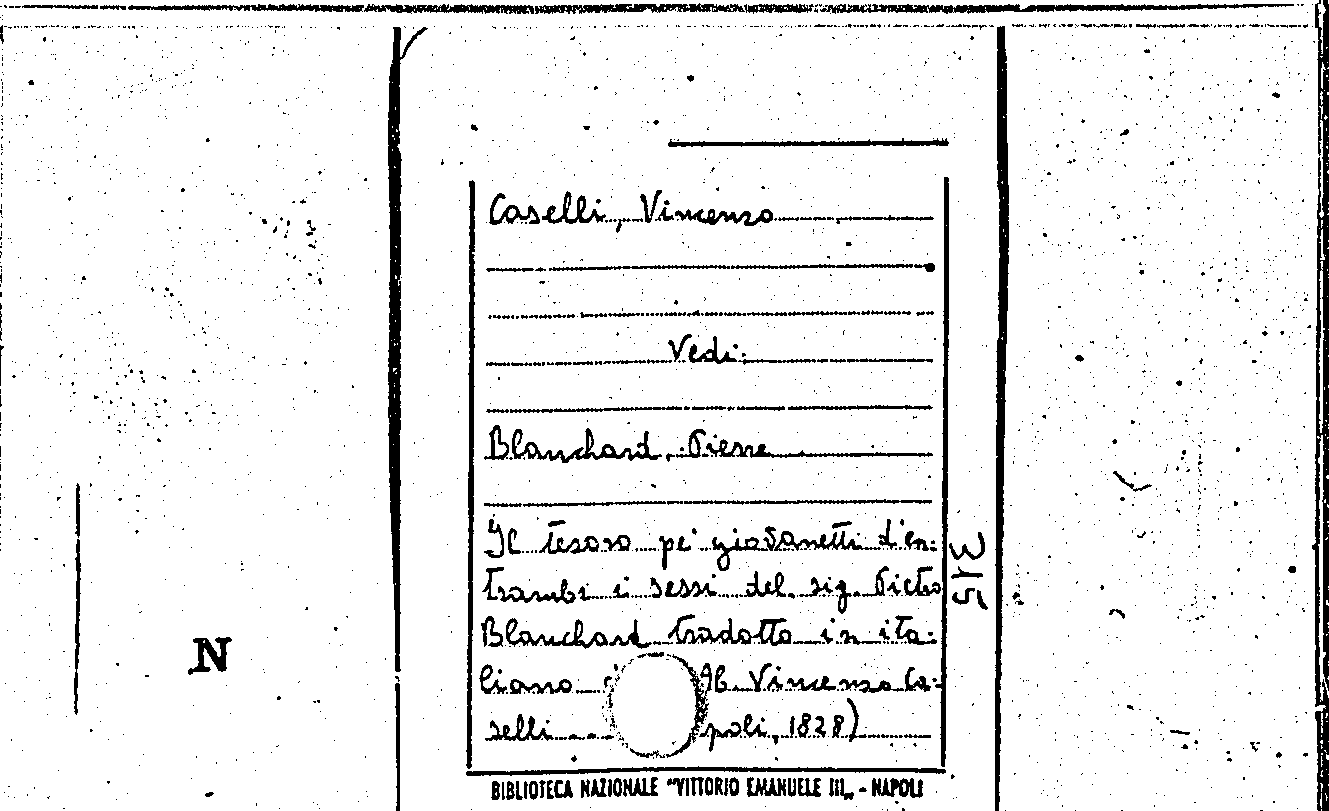 Caselli, Vincenzo
Vedi:
Blanchard, Pierre
Il tesoro pe' giovanetti d'en-
trambi i sessi del sig. Pietro
Blanchard tradotto in ita-
liano Ab. Vincenzo Ca-
selli... poli, 1828)
N
BIBLIOTECA NAZIONALE "VITTORIO EMANUELE III„ - NAPOLI